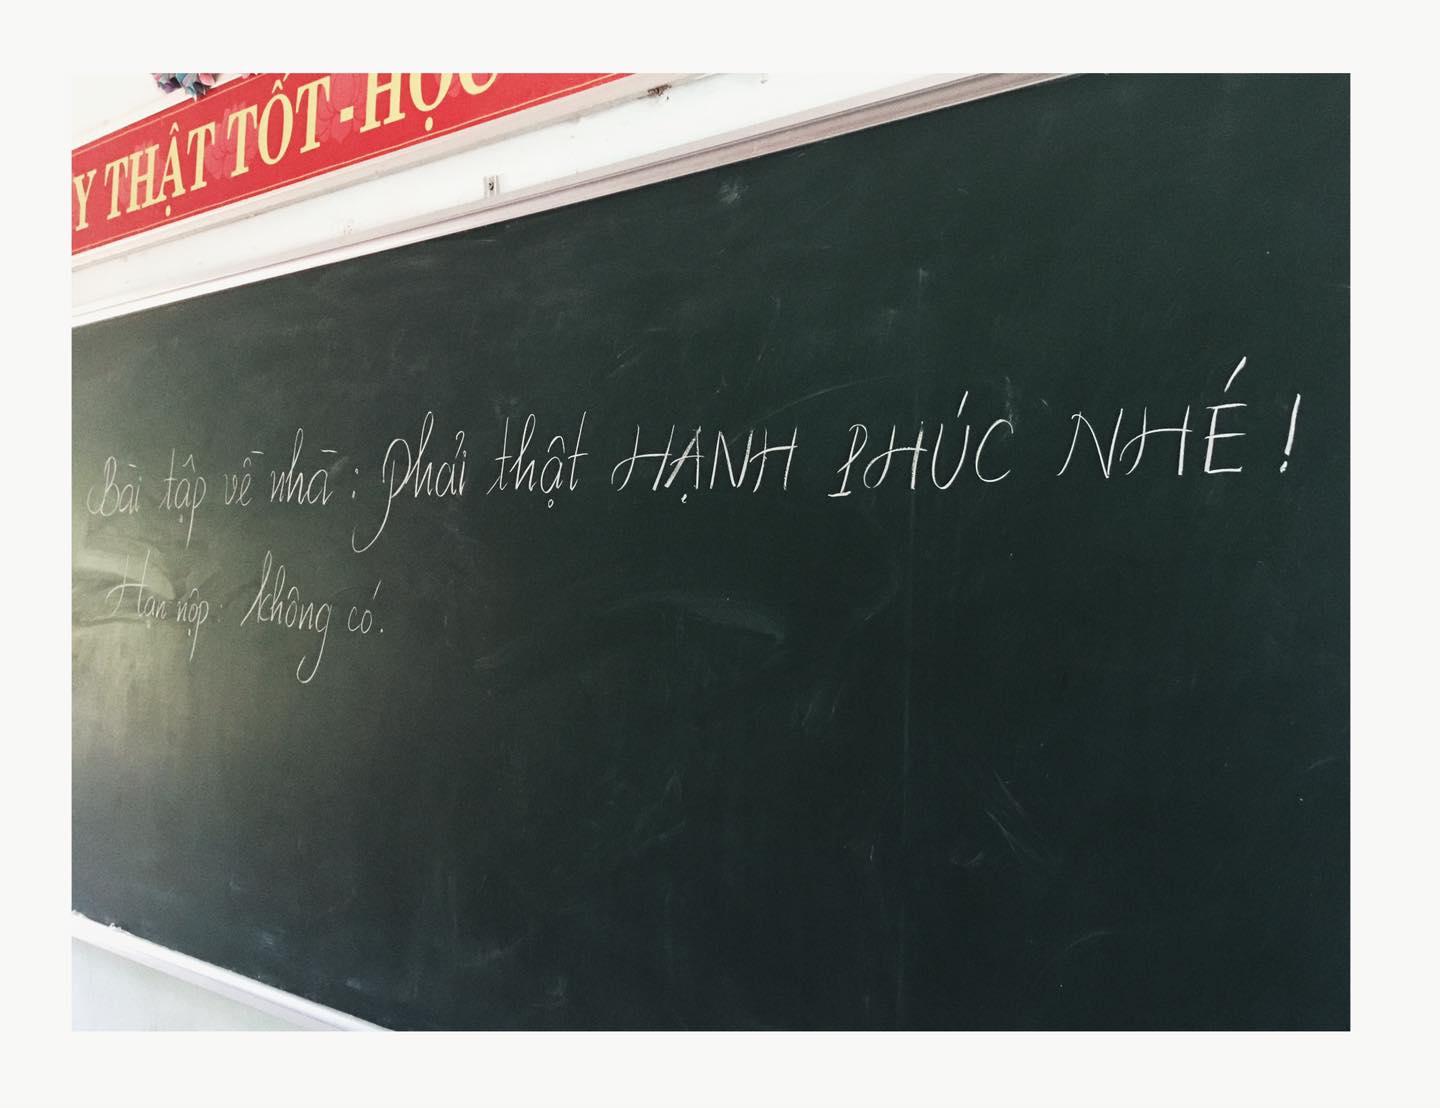 Y THẬT TỐT - HỌC
Bài tập về nhà : phải thật HẠNH PHÚC NHÉ !
Hạn nộp : không có.